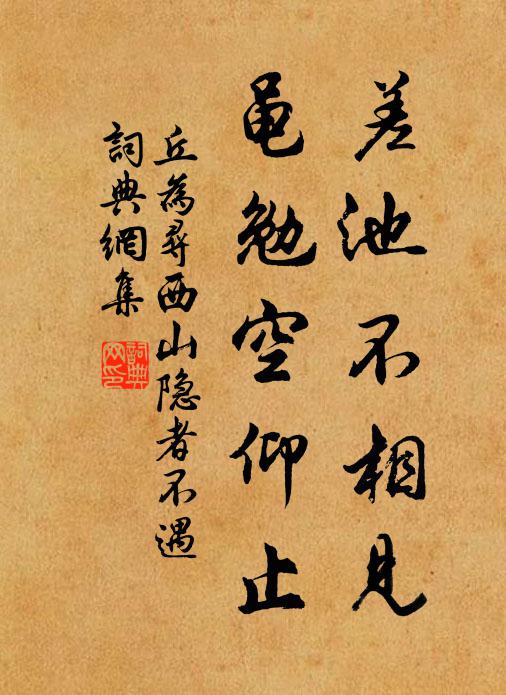 差池不相見
黽勉空仰止
丘為尋西山隐者不遇
詞典網集
詞典網印